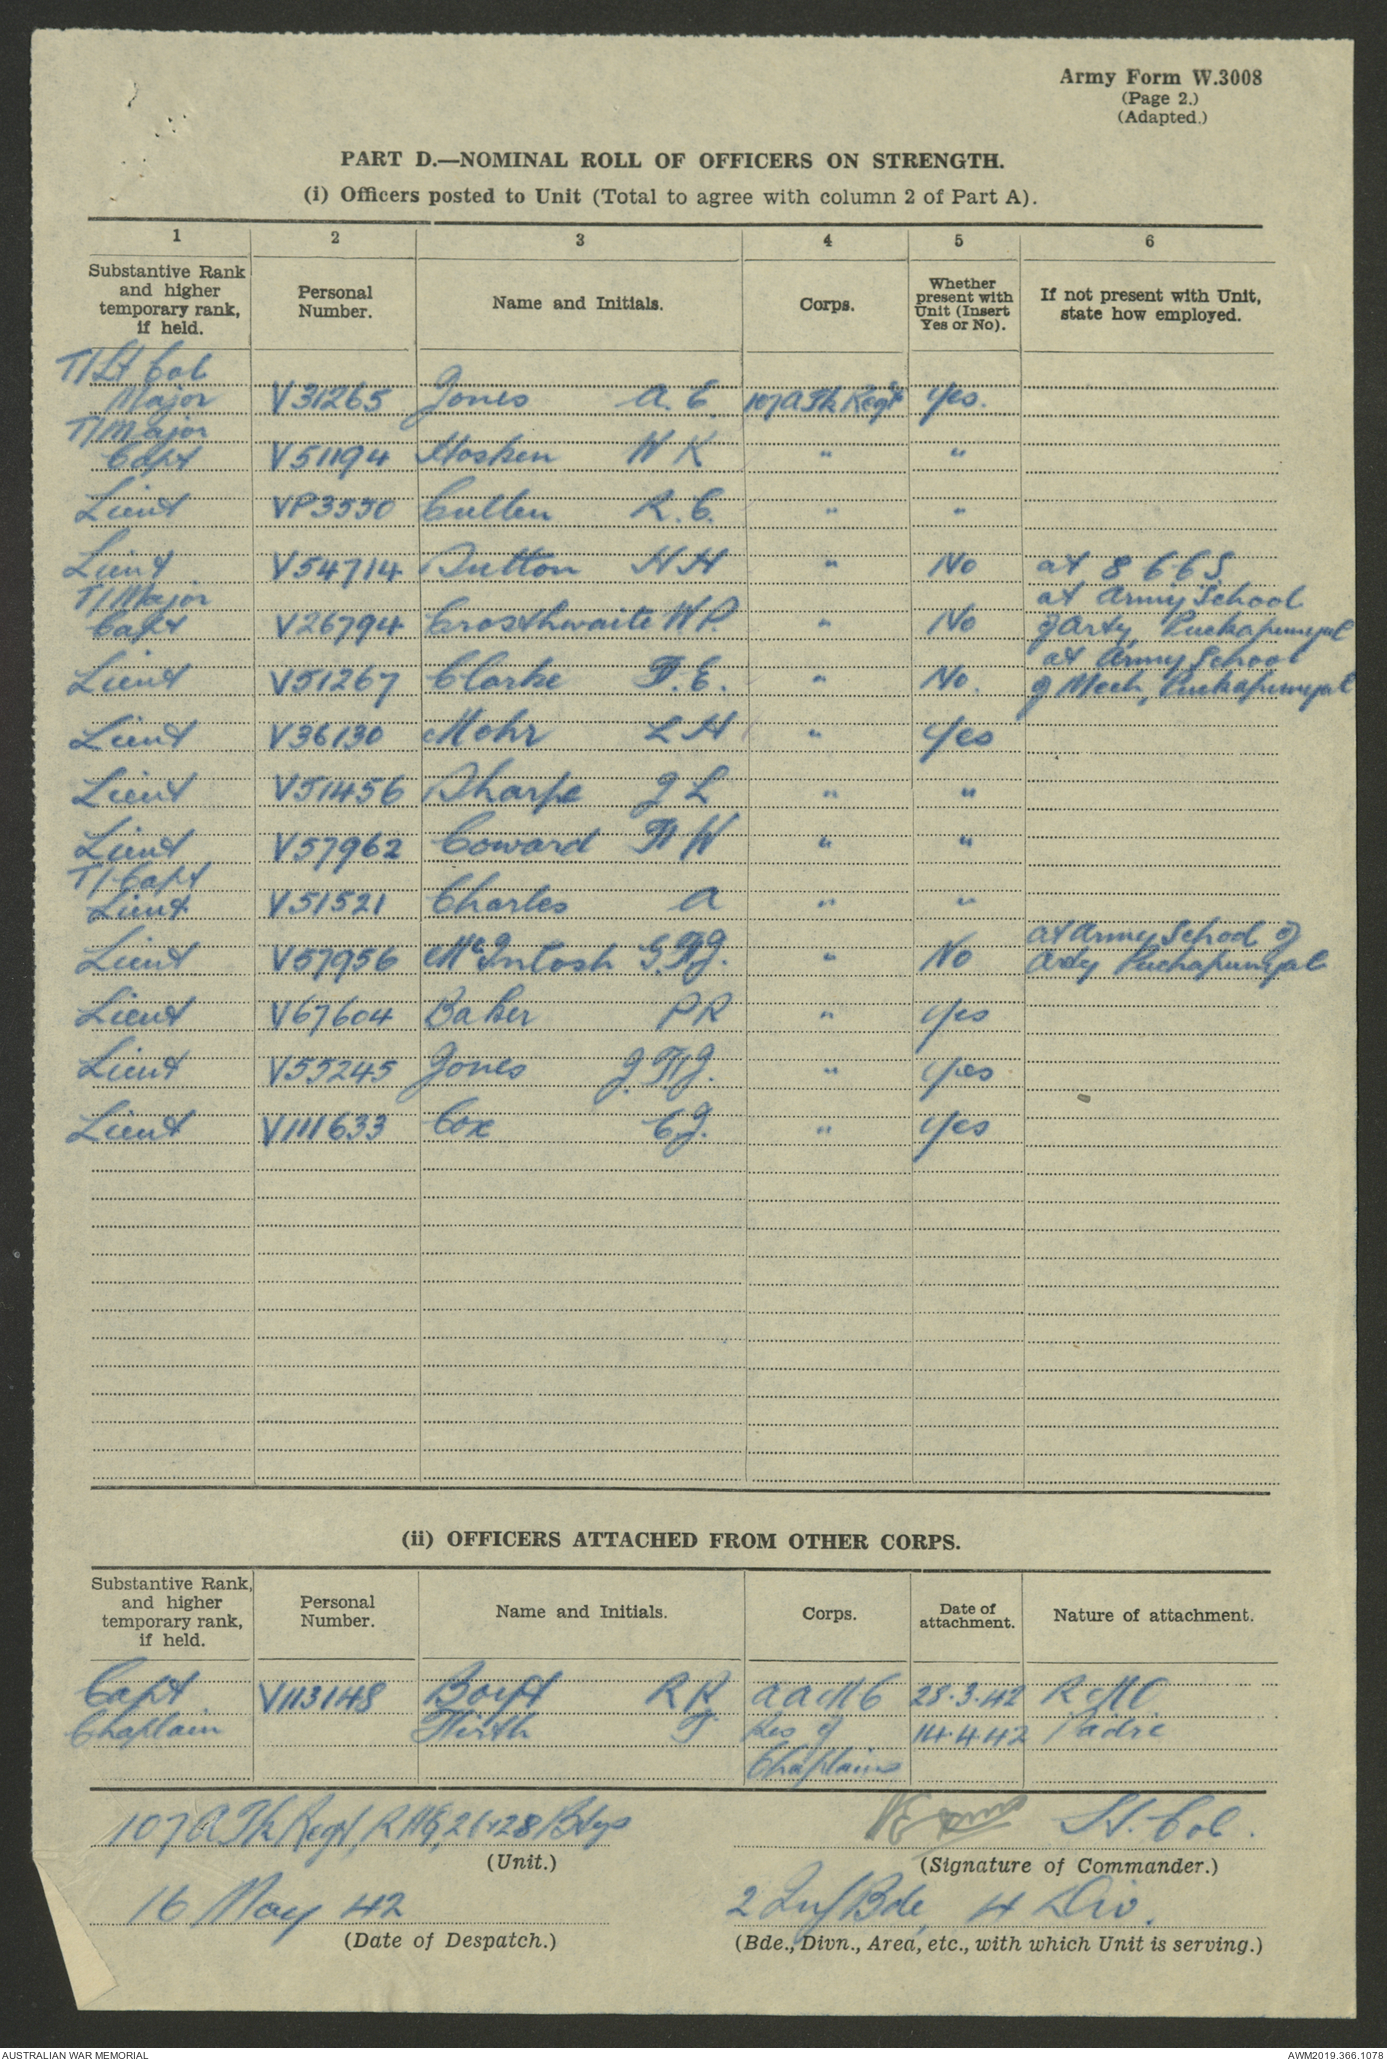 Army Form W.3008
(Page 2.)
(Adapted.)
PART D.—NOMINAL ROLL OF OFFICERS ON STRENGTH.
(i) Officers posted to Unit (Total to agree with column 2 of Part A).
1 2 3 4 5 6
Substantive Rank and higher temporary rank, if held. Personal Number. Name and Initials. Corps. Whether present with Unit (Insert Yes or No). If not present with Unit, state how employed.
T/Lt Col
Major V31265 Jones A. E. 107 A Tk Regt Yes.
T/Major
Capt V51194 Hosken W K " "
Lieut VP3550 Cullen R. C. " "
Lieut V54714 Dutton H H " No at 8
T/Major at Army School
Capt V26794 Crosthwaite W P. " No of Arty, Puckapunyal
at Army School
Lieut V51267 Clarke F. E. " No. of Mech, Puckapunyal
Lieut V36130 Mohr L H " Yes
Lieut V51456 Sharpe J L " "
Lieut V57962 Coward F W " "
T/Capt
Lieut V51521 Charles A " "
at Army School of
Lieut V57956 McIntosh G.F.J. " No Arty Puckapunyal
Lieut V67604 Baker P R " Yes
Lieut V55245 Jones J. F. J. " Yes
Lieut V111633 Cox C J. " Yes
(ii) OFFICERS ATTACHED FROM OTHER CORPS.
Substantive Rank, and higher temporary rank, if held. Personal Number. Name and Initials. Corps. Date of attachment. Nature of attachment.
Capt V113148 R R. A A M C 28.3.42 R M O
Chaplain T. Res of 14.4.42 Padre
Chaplains
107 A Tk Regt, R H Q, 26 & 28 Btys Lt. Col.
(Unit.) (Signature of Commander.)
16 May 42 2 Inf Bde, 4 Div.
(Date of Despatch.) (Bde., Divn., Area, etc., with which Unit is serving.)
AUSTRALIAN WAR MEMORIAL AWM2019.366.1078